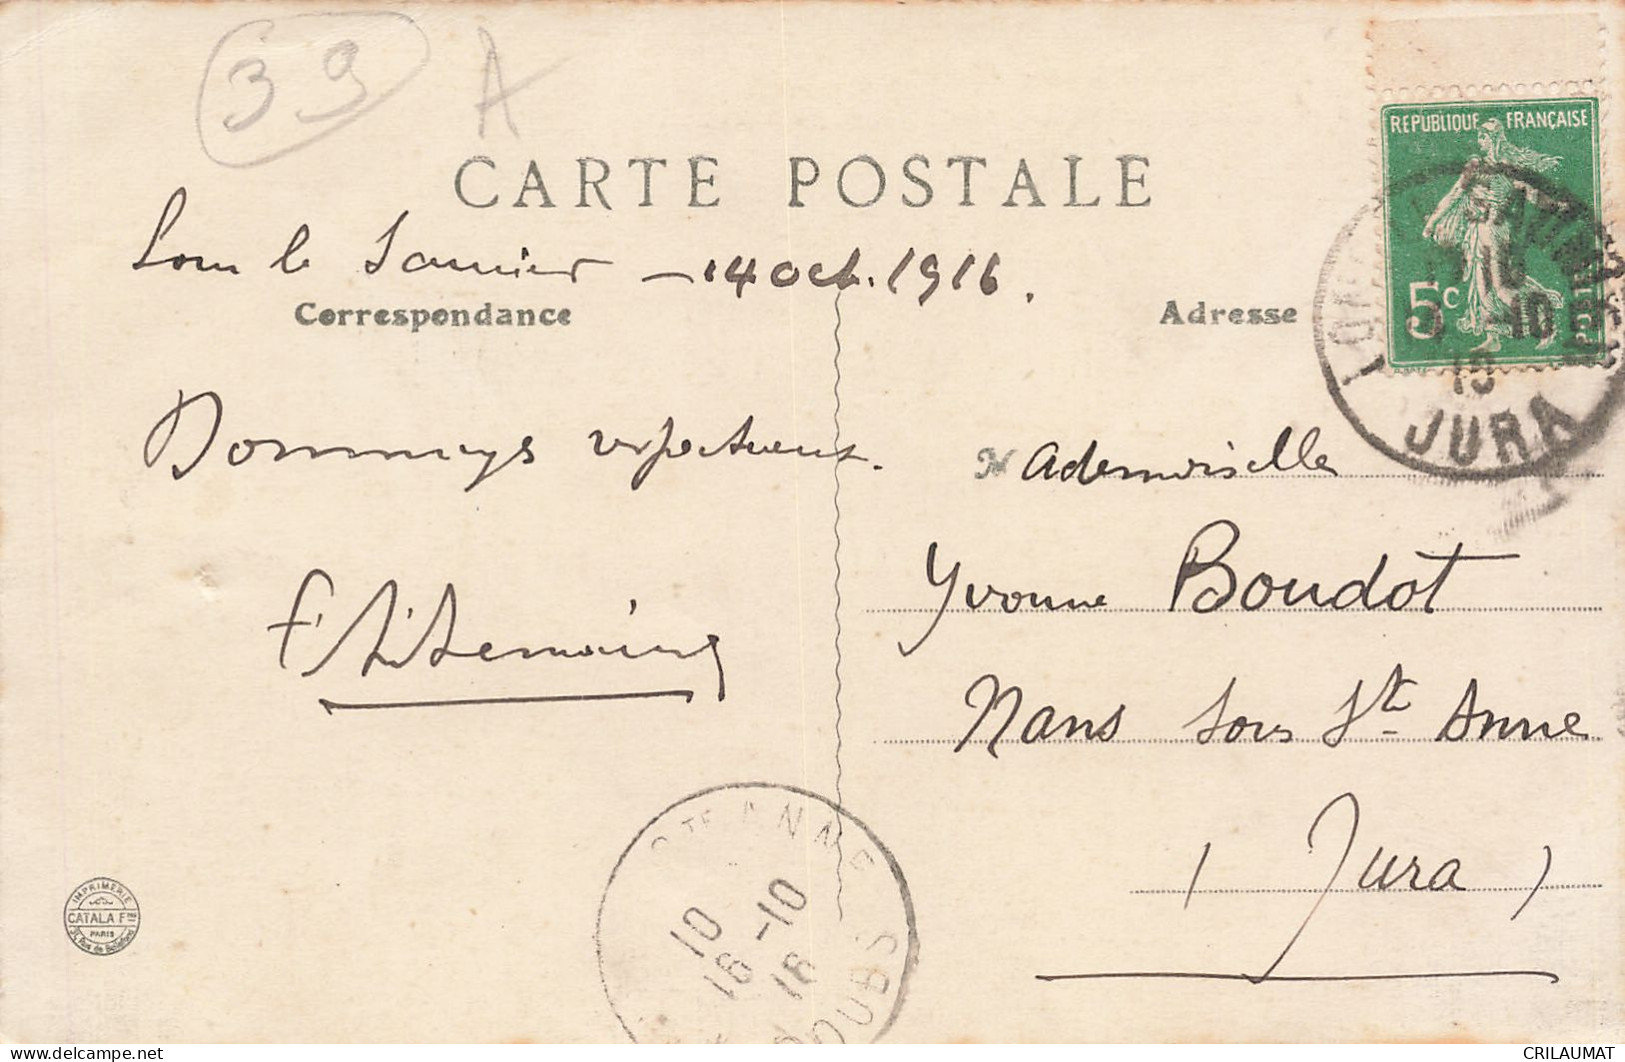 39 A
CARTE POSTALE
REPUBLIQUE FRANÇAISE
5c
Lons le Saunier - 14 oct. 1916.
Correspondance
Adresse
16
-10
JURA
Hommages respectueux.
Mademoiselle
Yvonne Boudot
Nans sous Ste Anne
(Jura)
STE ANNE
10
16 -10
16
DOUBS
IMPRIMERIE
CATALA Fres
PARIS
CRILAUMAT